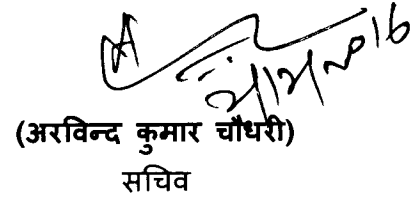 (अरविन्द कुमार चौधरी)
सचिव